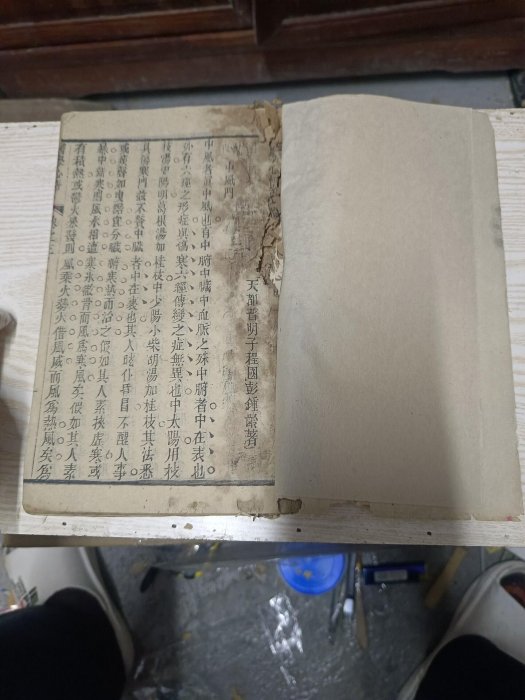 中風門
天都普明子程國彭鍾齡著
中風者眞中風也有中腑中臟中血脈之殊中腑者中在表也
外有六經之形症與傷寒六經傳變之症無異也中太陽用桂
枝湯中陽明葛根湯加桂枝中少陽小柴胡湯加桂枝其法悉
具傷寒門茲不贅中臟者中在裏也其人眩仆昏冒不醒人事
或痰聲如曳鋸宜分臟腑寒熱而治之假如其人素挾虛寒或
暴中新寒則風水相遭寒冰徹骨而風爲寒風矣假如其人素
有積熱或鬱火暴發則風乘火勢火借風威而風爲熱風矣爲
醫學心悟